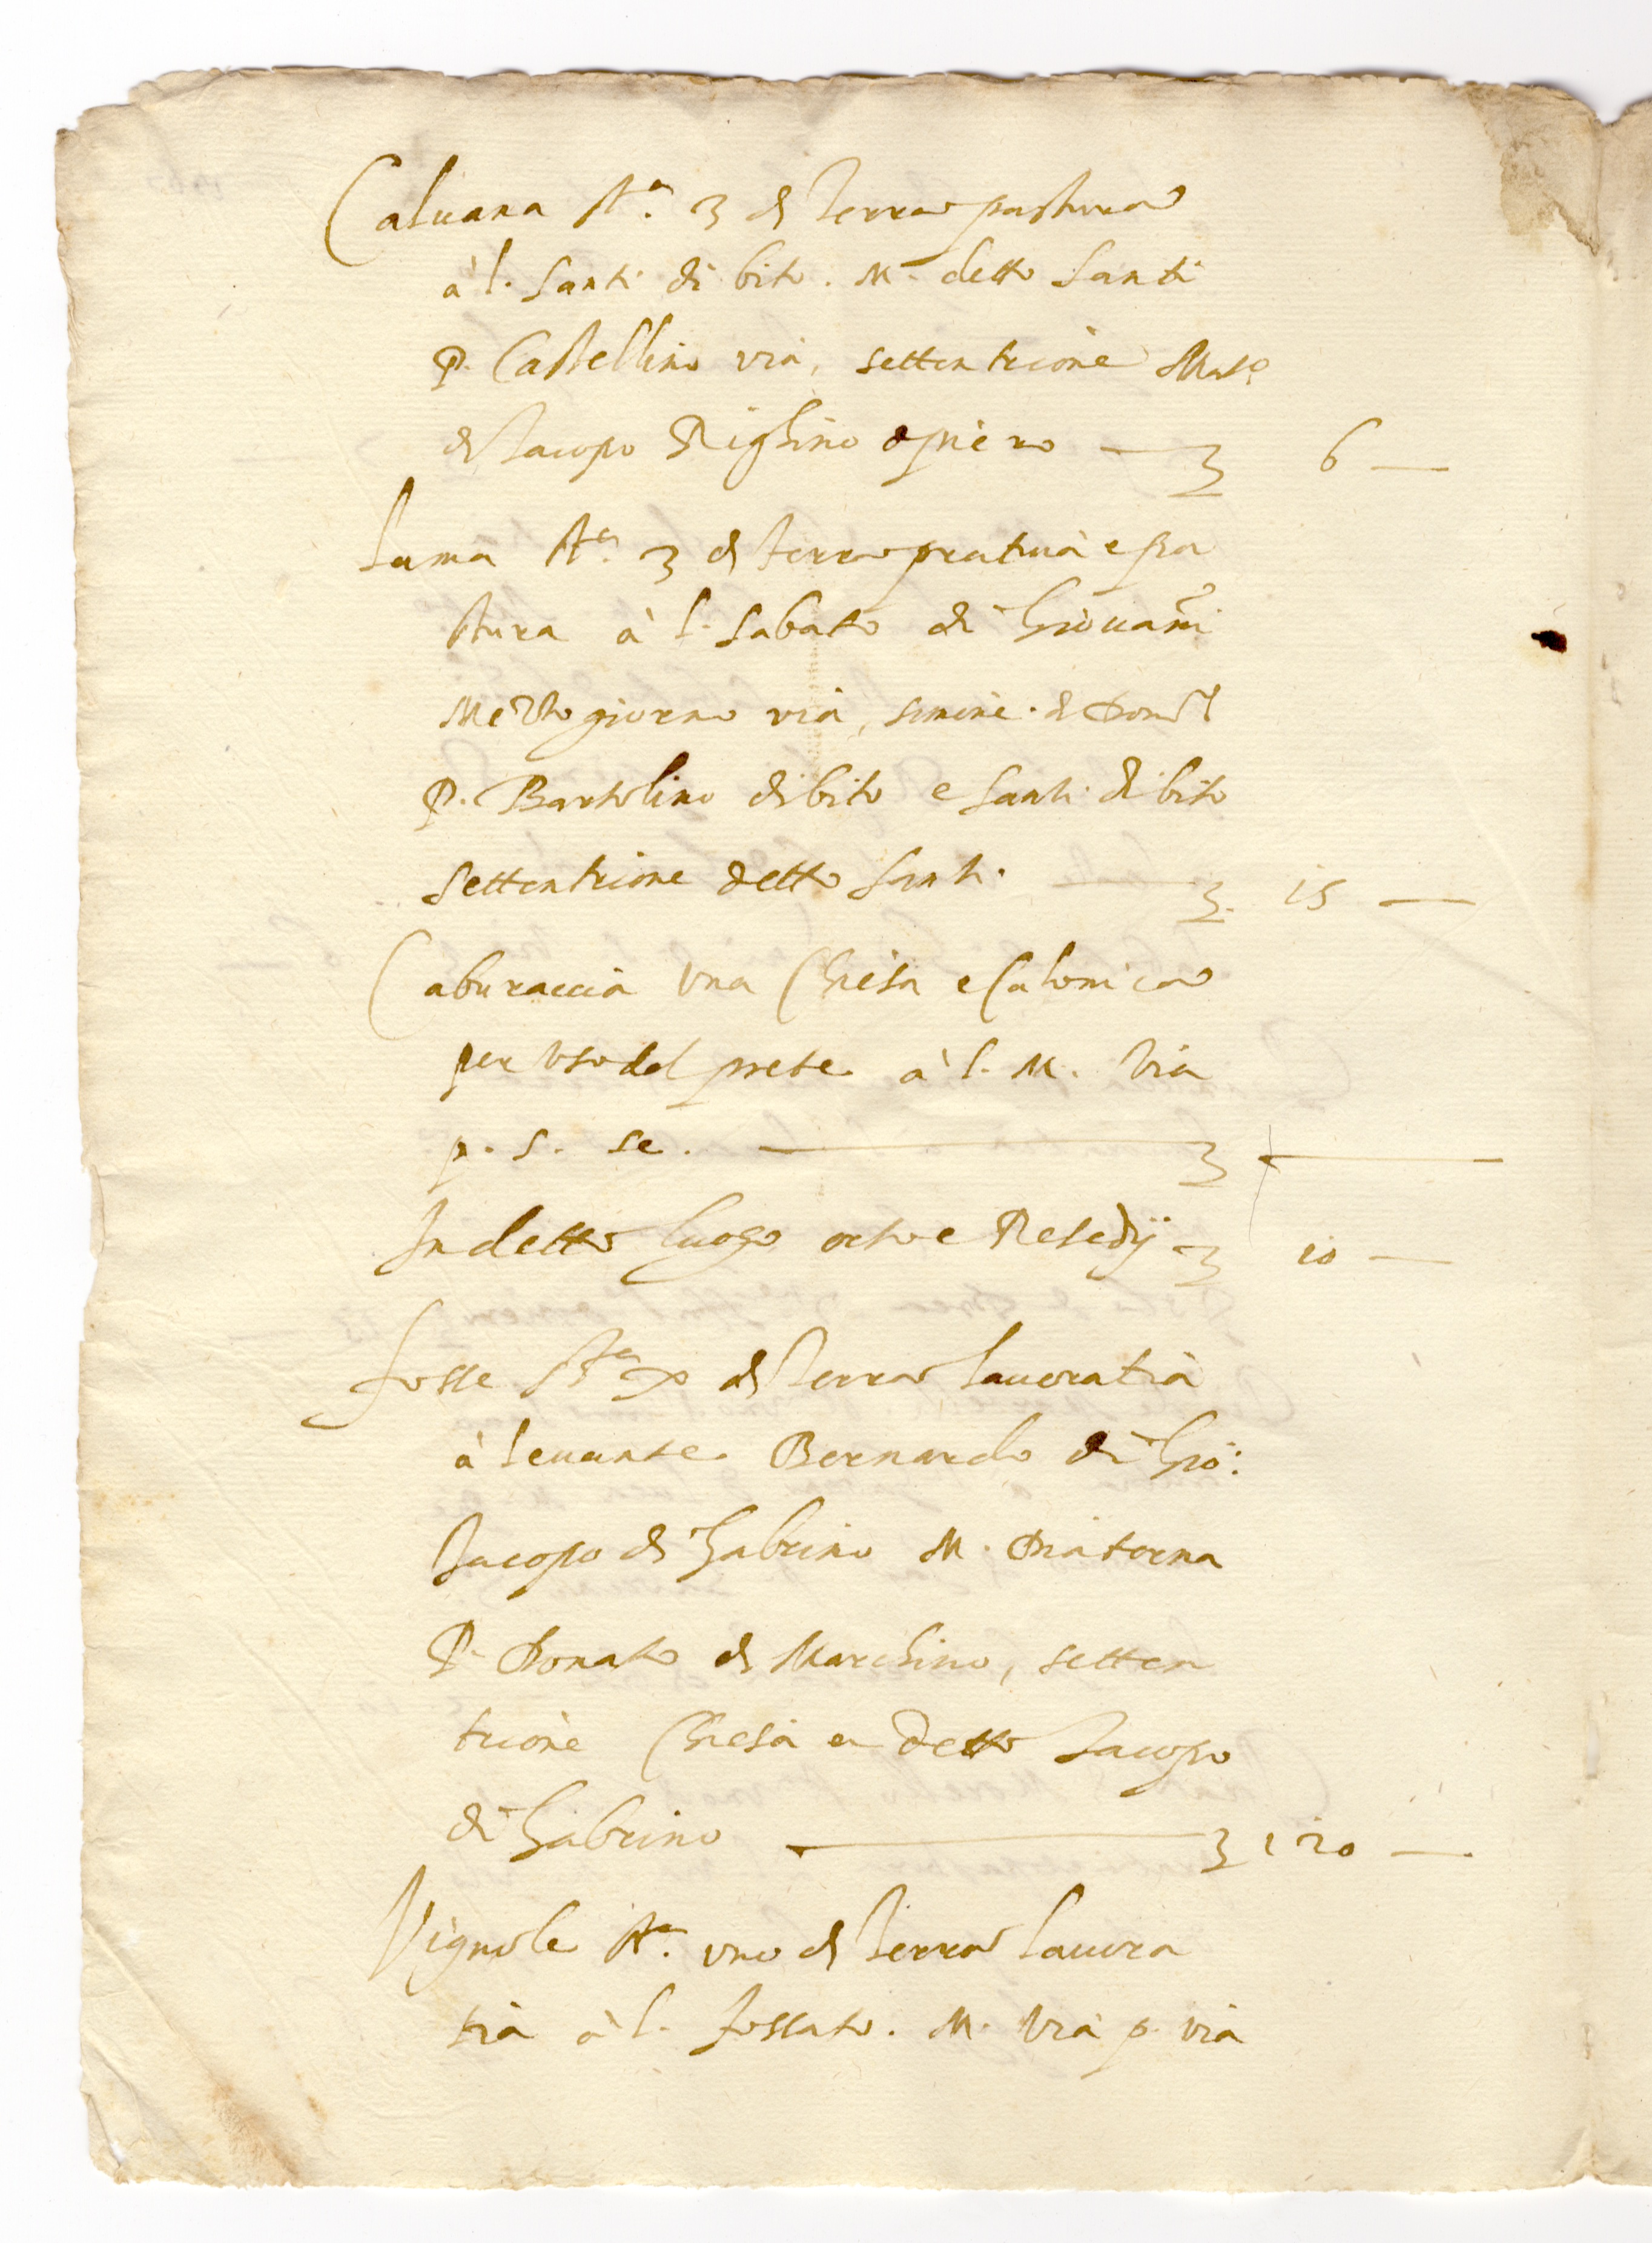 Caluana st.ª 3 di terra pastura
à l. Santi di bito. M. detto Santi
P. Castellino via, settentrione Maso
di Iacopo Righino e piero — 3 6 —
Lama st.ª 3 di terra pratiua e pa
stura à l. Sabato di Giouanni
Mezzo giorno via, simone di
P. Bartolino di bito e Santi di bito
settentrione detto Santi. — 3. 15 —
Caburaccia una Chiesa e Calonica
per uso del prete à l. M. Via
p. s. se. — 3 —
In detto luogo orto e Resedij 3 10 —
fosse st.ª di terra lauoratia
à leuante Bernardo di Gio:
Iacopo di Gabrino M.
P. Donato di Marchino, setten
trione Chiesa e detto Iacopo
di Gabrino — 3 120 —
Vignole st.ª uno di terra lauora
tia à l. fossato. M. Via p. via